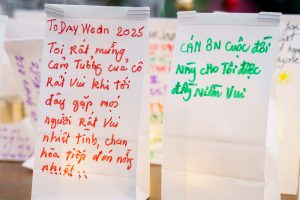 ToDay Wedn 2025
Tôi Rất muốn,
Cảm Tưởng của cô
Rất Vui khi tôi
đây gặp, mọi
người Rất Vui
nhiệt tình, chan
hòa tiếp đón nồng
nhiệt !!
CÁM ƠN CUỘC đời
Nàng cho Tôi được
đầy Niềm Vui